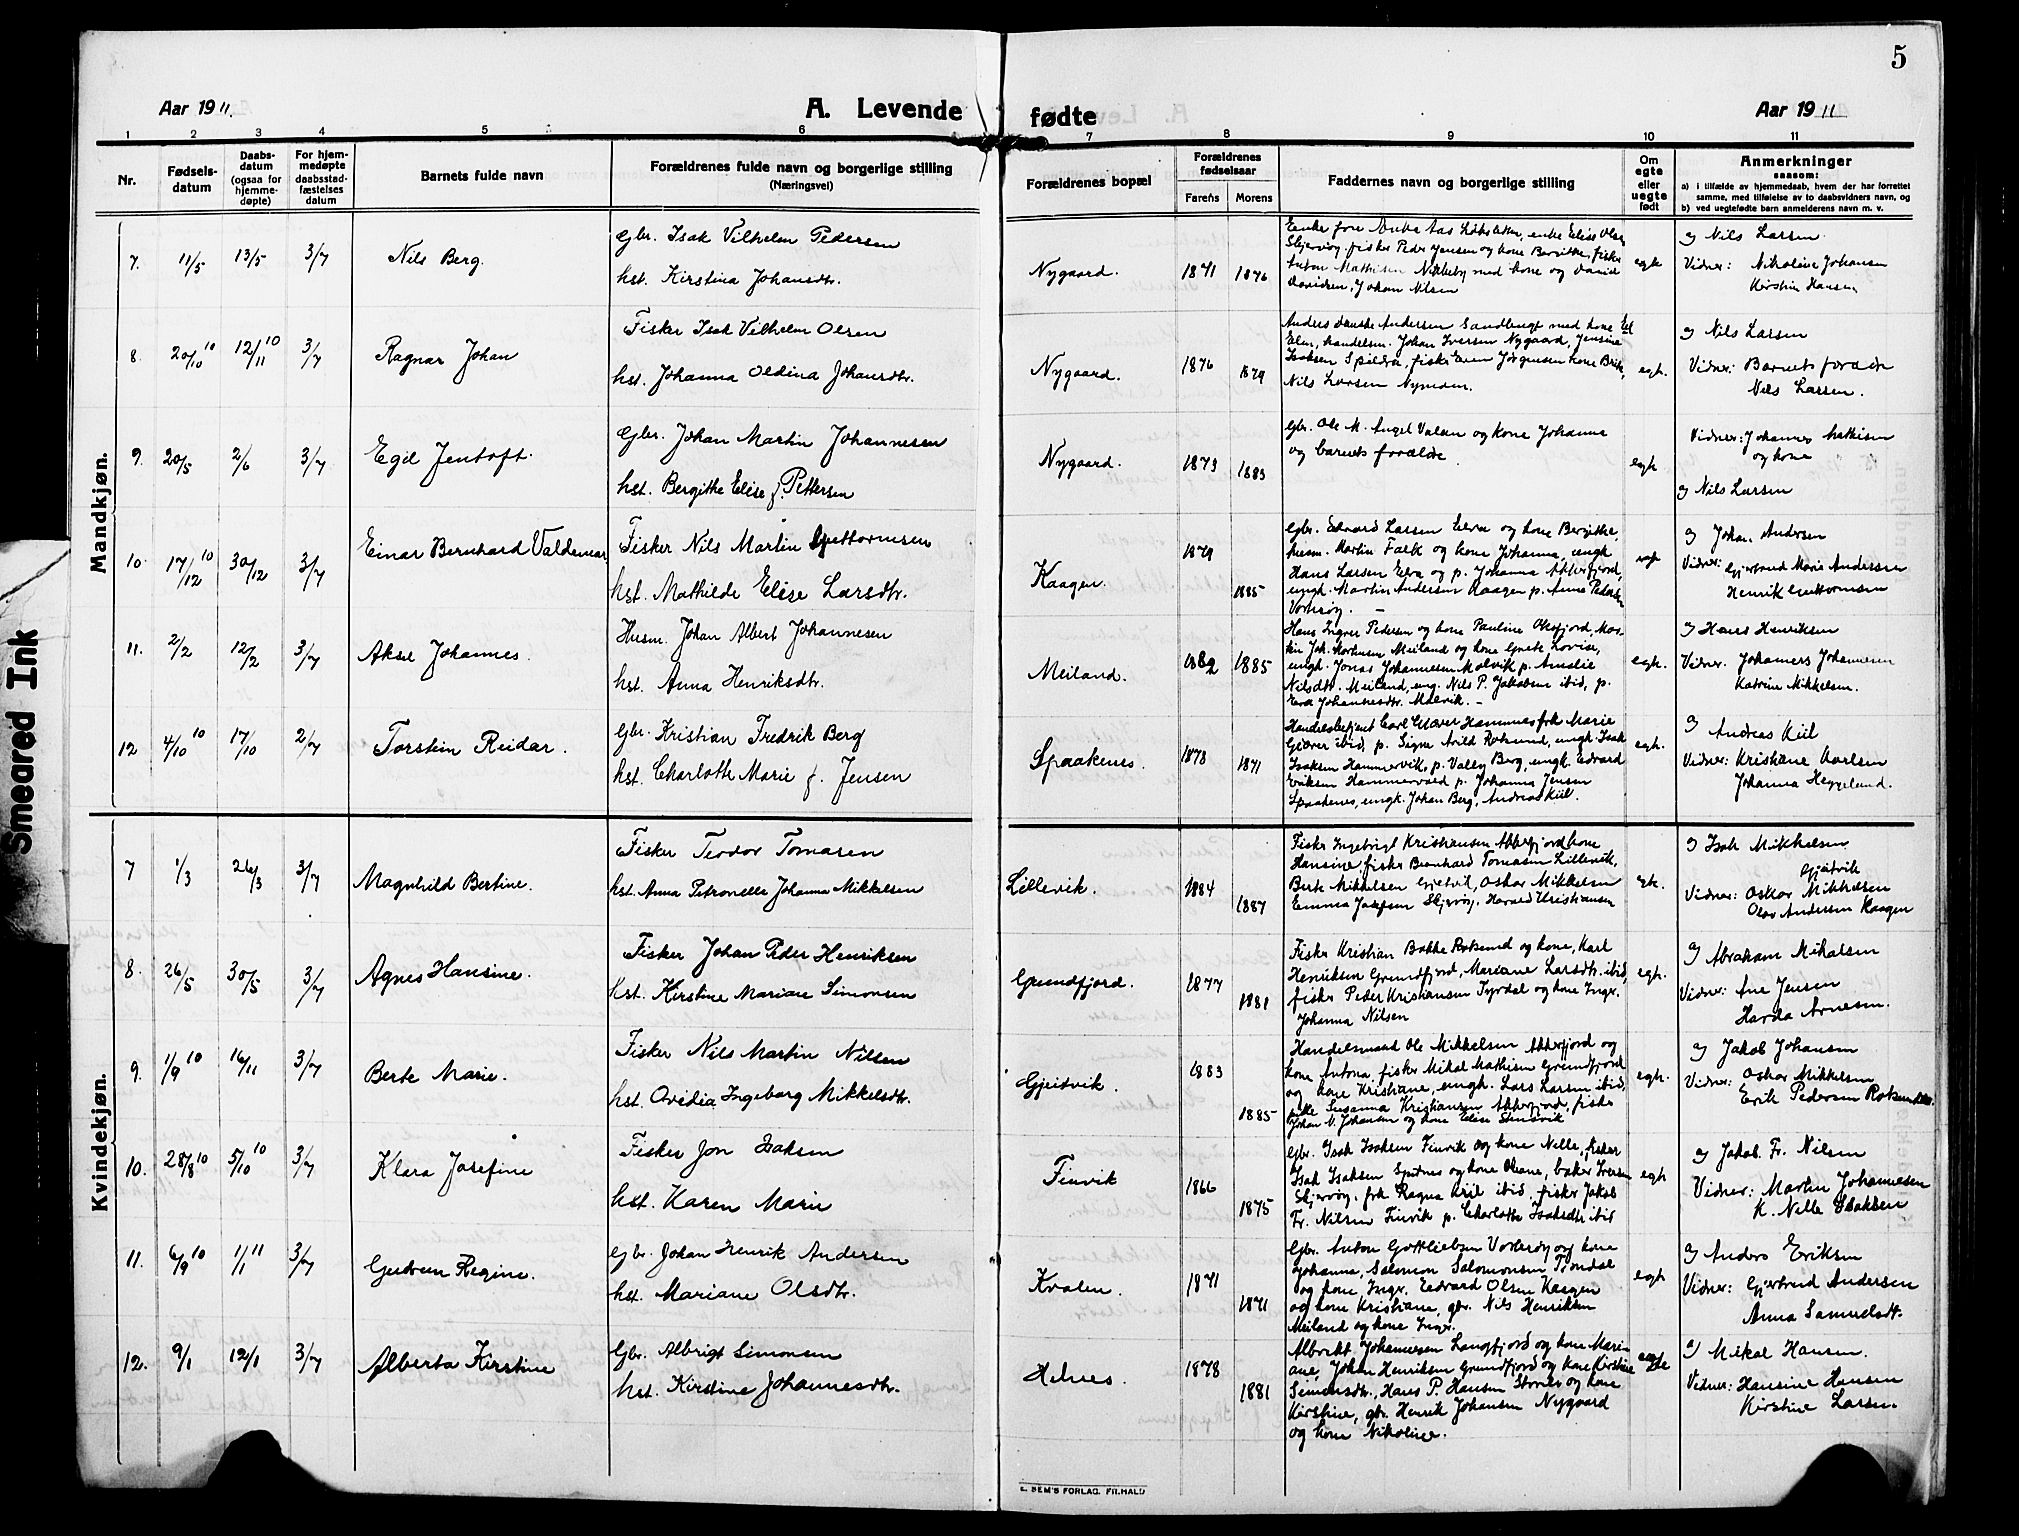 5
Aar 1911.
A. Levende
fødte
Aar 1911
1 2 3 4 5 6 7 8 9 10 11
Nr.
Fødsels-
datum
Daabs-
datum
(ogsaa for
hjemme-
døpte)
For hjem-
medøpte
daabsstad-
fæstelses
datum
Barnets fulde navn
Forældrenes fulde navn og borgerlige stilling
(Næringsvei)
Forældrenes bopæl
Forældrenes
fødselsaar
Farens Morens
Faddernes navn og borgerlige stilling
Om
egte
eller
uegte
født
Anmerkninger
saasom:
a) i tilfælde av hjemmedaab, hvem der har forrettet
samme, med tilføielse av to daabsvidners navn, og
b) ved uegtefødte barn anmelderens navn m. v.
Mandkjøn.
7. 11/5 13/5 3/7 Nils Berg.
Gbr. Isak Vilhelm Pedersen
hst. Kirstina Johansdtr.
Nygaard. 1871 1876
Skjervøy, fisker Peder Jensen og kone Bergitte, fisker
Davidsen, Johan Nilsen
egte
a) Nils Larsen
Vidner: Nikoline Johansen
Kirstine Hansen
8. 20/10 10 12/11 10 3/7 Ragnar Johan
Fisker Isak Vilhelm Olsen
hst. Johanna Oldina Johansdtr.
Nygaard. 1876 1879
Isaksen Spildra, fisker Even Jørgensen kone Brita,
Nils Larsen Nymoen.
egt.
a) Nils Larsen
Vidner: Barnets forældre
Nils Larsen.
9. 20/5 2/6 3/7 Egil Jentoft.
Gbr. Johan Martin Johannesen
hst. Bergithe Elise f. Pettersen
Nygaard. 1873 1883
Gbr. Ole M. Angel Valan og kone Johanna
og barnets forældre.
egt.
Vidner: Johannes Mathisen
og kone
a) Nils Larsen
10. 17/12 10 30/12 3/7 Einar Bernhard Valdemar
Fisker Nils Martin Guttormsen
hst. Mathilde Elise Larsdtr.
Kaagen. 1879 1885
Gbr. Edvard Larsen Elva og kone Bergitte,
husm. Martin Falk og kone Johanna, ungk.
Hans Larsen Elva og p. Johanna Akkerfjord,
ungk. Martin Andersen Kaagen p. Anna Pedersen
Vorterøy. –
a) Johan Andersen
Vidner: Gjertrud Marie Andersen
Henrik Guttormsen
11. 2/2 12/2 3/7 Aksel Johannes.
Husm. Johan Albert Johannesen
hst. Anna Henriksdtr.
Meiland. 1882 1885
Hans Ingver Pedersen og kone Pauline Oksfjord, Mar-
tin Joh. Mortensen Meiland og kone Grete Lovise,
ungk. Jonas Johannesen Molvik p. Amalie
Nilsdtr. Meiland, ung. Nils P. Jakobsen ibid, p.
Eva Johannesdtr. Molvik. –
egt.
a) Hans Henriksen
Vidner. Johannes Johannesen
Katrine Mikkelsen.
12 4/10 10 17/10 2/7 Torstein Reidar.
Gbr. Kristian Fredrik Berg
hst. Charlotte Marie f. Jensen
Spaakenes. 1878 1871
Handelsbetjent Carl Giæver Hammnes frk Marie
Giæver ibid, p. Signe Arild Rotsund, ungk. Isak
Isaksen Hammervik, p. Valey Berg, ungk. Edvard
Eriksen Hammervold p. Johanna Jensen
Spaakenes, ungk. Johan Berg, Andreas Kiil.
egt.
a) Andreas Kiil
Vidner: Kristiane Karlsen
Johanna Heggelund.
Kvindekjøn.
7 1/3 26/3 3/7 Magnhild Bertine.
Fisker Teodor Tomasen
hst. Anna Petronelle Johanna Mikkelsen
Lillevik. 1884 1887
Fisker Ingebrigt Kristiansen Akkerfjord kone
Hansine, fisker Bernhard Tomasen Lillevik,
Berte Mikkelsen Gjetvik, Oskar Mikkelsen
Emma Josefsen Skjervøy, Harald Kristiansen
egt.
a) Isak Mikkelsen
Gjeitvik
Vidner: Oskar Mikkelsen
Olav Andersen Kaagen
8. 26/5 30/5 3/7 Agnes Hansine.
Fisker Johan Peder Henriksen
hst. Kirstine Mariane Simonsen
Grundfjord. 1877 1881
Fisker Kristian Bakke Rotsund og kone, Karl
Henriksen Grundfjord, Mariane Larsdtr. ibid,
fisker Peder Kristiansen Tyrdal og kone Inger.
Johanna Nilsen
egt.
a) Abraham Mikalsen
Vidner: Ane Jensen
Harda Arnesen.
9. 1/9 10 16/11 3/7 Berte Marie.
Fisker Nils Martin Nilsen
hst. Ovidia Ingeborg Mikkelsdtr.
Gjeitvik. 1883 1885
Handelsmand Ole Mikkelsen Akkerfjord og
kone Antona, fisker Mikal Mathisen Grundfjord
og kone Kristiane, ungk. Lars Larsen ibid,
pike Susanna Kristiansen Akkerfjord, fisker
Johan N. Johansen og kone Elise Stensvik
egt.
a) Jakob Johansen
Vidner: Oskar Mikkelsen
Erik Pedersen Rotsunddal.
10. 28/8 10 5/10 10 3/7 Klara Josefine
Fisker Jon Isaksen
hst. Karen Marie
Finvik 1866 1875
Gbr. Isak Isaksen Finvik og kone Nelle, fisker
Isak Isaksen Spitnes og kone Oleane, baker Iversen
Skjervøy, frk Ragna Kiil ibid, fisker Jakob
Fr. Nilsen Finvik p. Charlotte Isaksdtr ibid
egt
a) Jakob Fr. Nilsen
Vidner: Martin Johannesen
K. Nelle Isaksen
11. 6/9 10 1/1 11 3/7 Gudrun Regine.
Gbr. Johan Henrik Andersen
hst. Mariane Olsdtr.
Kvalen. 1871 1871
Gbr. Anton Gottliebsen Vorterøy og kone
Johanna, Salomon Salomonsen Tjondal
og kone Inger. Edvard Olsen Kaagen
og kone Kristiane, gbr. Nils Henriksen
Meiland og kone Inger.
egt.
a) Anders Eriksen
Vidner: Gjertrud Andersen
Anna Samuelsdt.
12. 9/1 12/1 3/7 Alberta Kirstine
Gbr. Albrigt Simonsen
hst. Kirstine Johannesdtr.
Helnes. 1878 1881
Albrikt Johannesen Langfjord og kone Mari-
ane, Johan Henriksen Grundfjord og kone Kirstine
Simonsdtr., Hans P. Hansen Stornes og kone
Kirstine, gbr. Henrik Johansen Nygaard
og kone Nikoline.
egte
a) Mikal Hansen.
Vidner: Hansine Hansen
Kirstine Larsen.
Smeared Ink
E. SEM'S FORLAG. FR.HALD